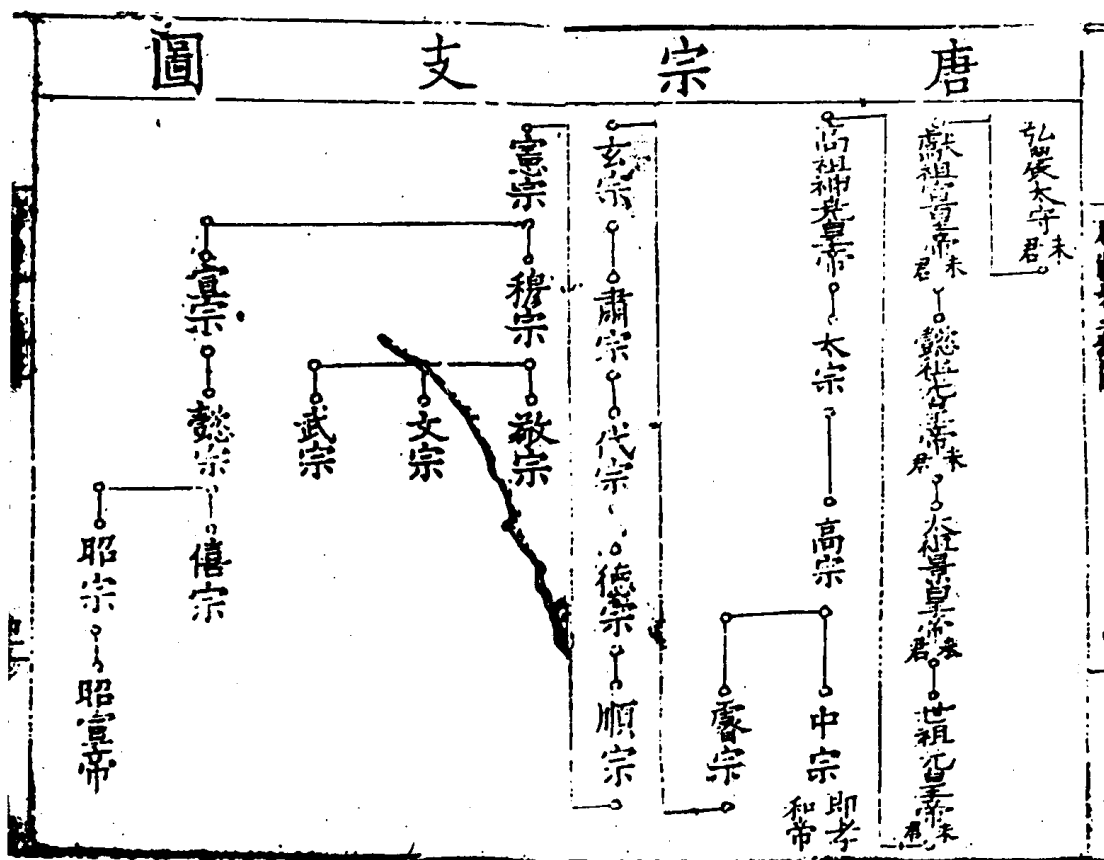 唐宗支圖
弘農太守
未君
獻祖宣皇帝
未君
懿祖光皇帝
未君
太祖景皇帝
未君
世祖元皇帝
未君
高祖神堯皇帝
太宗
高宗
中宗
即孝和帝
睿宗
玄宗
肅宗
代宗
德宗
順宗
憲宗
穆宗
敬宗
文宗
武宗
宣宗
懿宗
僖宗
昭宗
昭宣帝